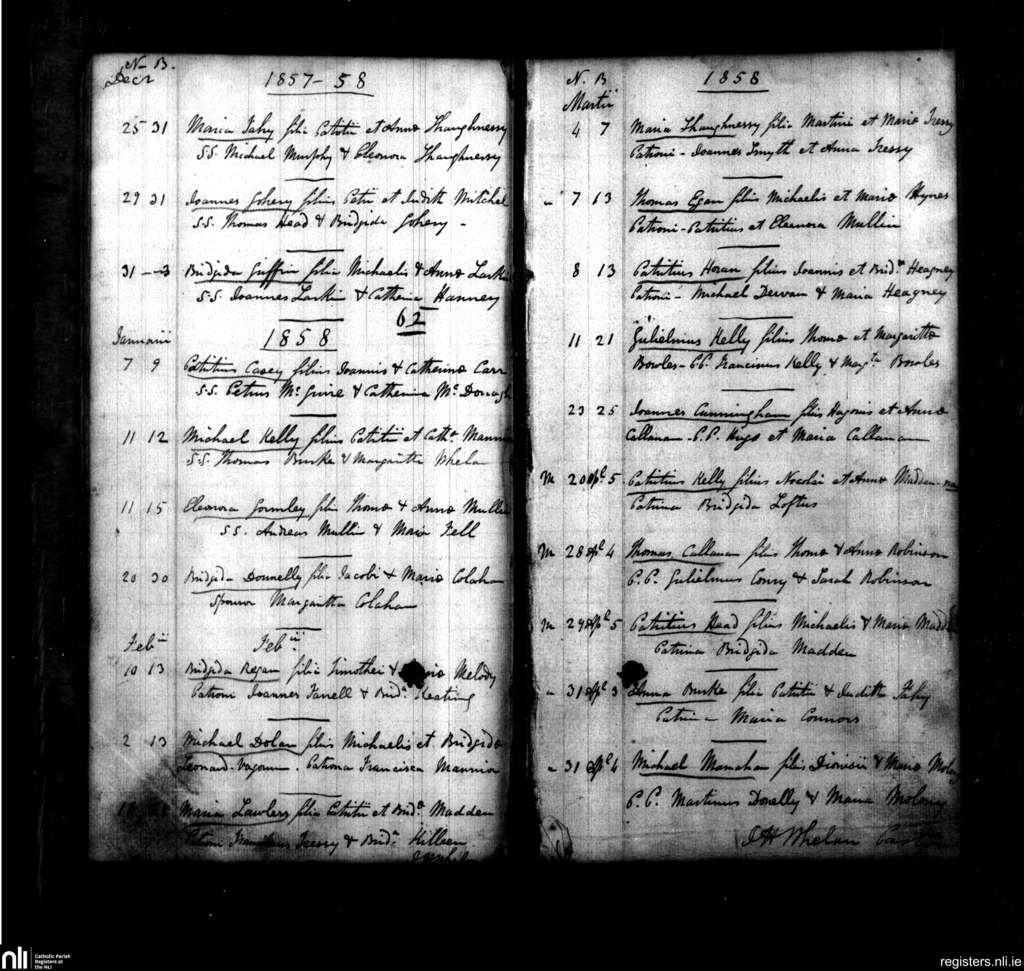 N. B.
Decr 1857-58
25 31 Maria Fahy filia Patritii et Anna Shaughnessy
S.S. Michael Murphy & Eleonora Shaughnessy
29 31 Joannes Gohery filius Petri et Judith Mitchel
S.S. Thomas Head & Bridgida Gohery -
31 - 3 Bridgida Guffin filia Michaelis & Anna Larkin
S.S. Joannes Larkin & Catherina Hanney
62
Januarii 1858
7 9 Patritius Casey filius Joannis & Catherina Carr
S.S. Petrus Mc Guire & Catherina Mc Donagh
11 12 Michael Kelly filius Patritii et Cath.
S.S. Thomas Burke & Margaritta Whela
11 15 Eleonora Gormley filia Thoma & Anna Mullin
S.S. Andreas Mullin & Maria Fell
20 30 Bridgida Donnelly filia Jacobi & Maria Colahan
Sponsor Margaritta Colahan
Feb ii Feb ii
10 13 Bridgida Regan filia Timothei & Melody
Patroni Joannes Farrell & Brid. Keating
2 13 Michael Dolan filius Michaelis et Bridgida
Leonard - vagorum. Patrona Francisca Mannion
Maria Lawless filia Patritii et Brid. Madden
Patroni & Brid. Killeen
N. B 1858
Martii
4 7 Maria Shaughnessy filia Martini et Maria Tressy
Patroni - Joannes Smyth et Anna Tressy
" 7 13 Thomas Egan filius Michaelis et Maria Hynes
Patroni - Patritius et Eleanora Mullin
8 13 Patritius Horan filius Joannis et Brid. Heagney
Patroni - Michael Dervan & Maria Heagney
11 21 Gulielmus Kelly filius Thoma et Margaritta
Bowles - P.P. Franciscus Kelly & Marg.ta Bowles
23 25 Joannes Cunningham filius Hugonis et Anna
Callanan - P.P. Hugo et Maria Callanan
M 20 Apl 5 Patritius Kelly filius Nicolai et Anna Madden
Patrina Bridgida Loftus
M 28 Apl 4 Thomas Callanan filius Thoma & Anna Robinson
P.P. Gulielmus Conry & Sarah Robinson
M 29 Apl 5 Patritius Head filius Michaelis & Maria Madden
Patrina Bridgida Madden
" 31 Apl 3 Anna Burke filia Patritii & Judith Fahy
Patrina - Maria Connors
" 31 Apl 4 Michael Manahan filius Dionisii & Maria
P.P. Martinus Donelly & Maria Molony
J H Whelan
nli
Catholic Parish
Registers at
the NLI
registers.nli.ie